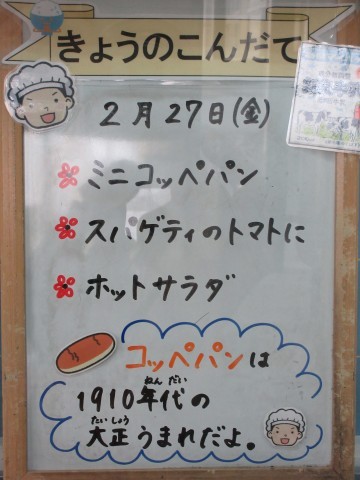 きょうのこんだて
2月27日(金)
ミニコッペパン
スパゲティのトマトに
ホットサラダ
コッペパンは
1910年代の
ねんだい
大正うまれだよ。
たいしょう